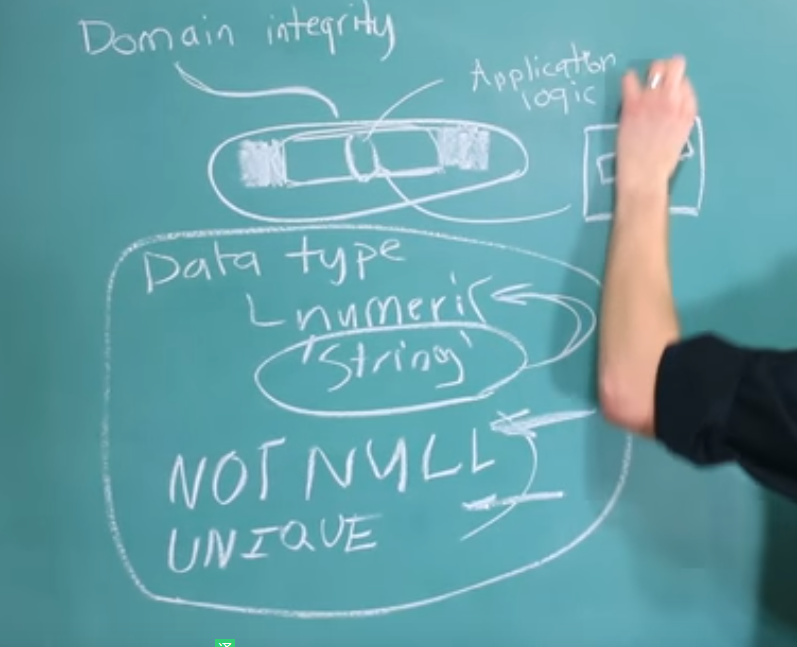 Domain integrity
Application
logic
Data type
numeric
'String'
NOT NULL
UNIQUE